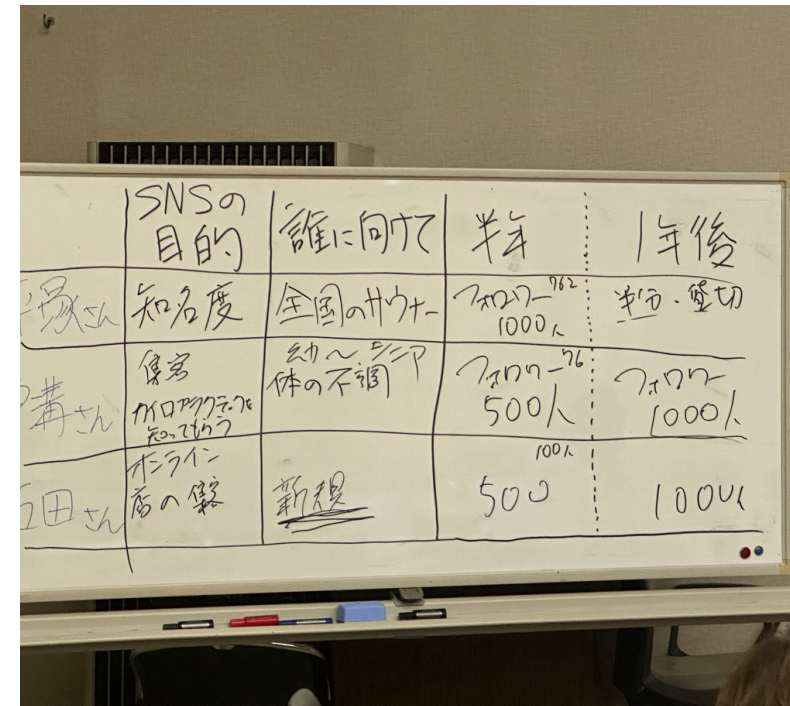 SNSの
目的
誰に向けて
半年
1年後
塚さん
知名度
全国のサウナー
フォロワー762
1000人
半分・貸切
溝さん
集客
カイロプラクティックを
知ってもらう
幼〜シニア
体の不調
フォロワー76
500人
フォロワー
1000人
田さん
オンライン
店の集客
新規
100人
500
1000人